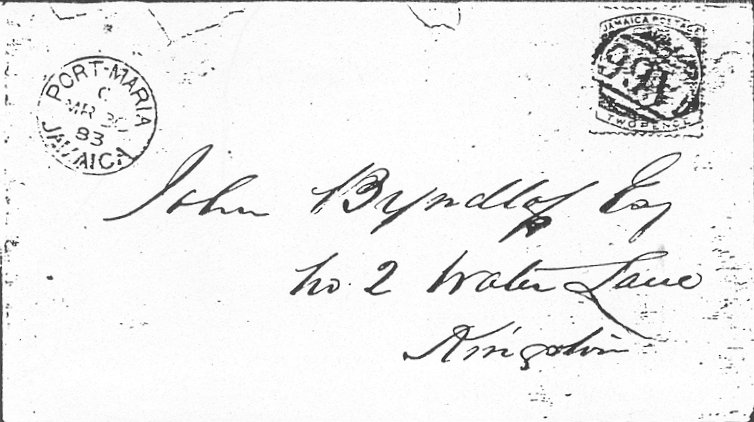 PORT-MARIA
C
MR 30
83
JAMAICA
JAMAICA POSTAGE
TWO PENCE
John Byndloss Esq
No. 2 Water Lane
Kingston